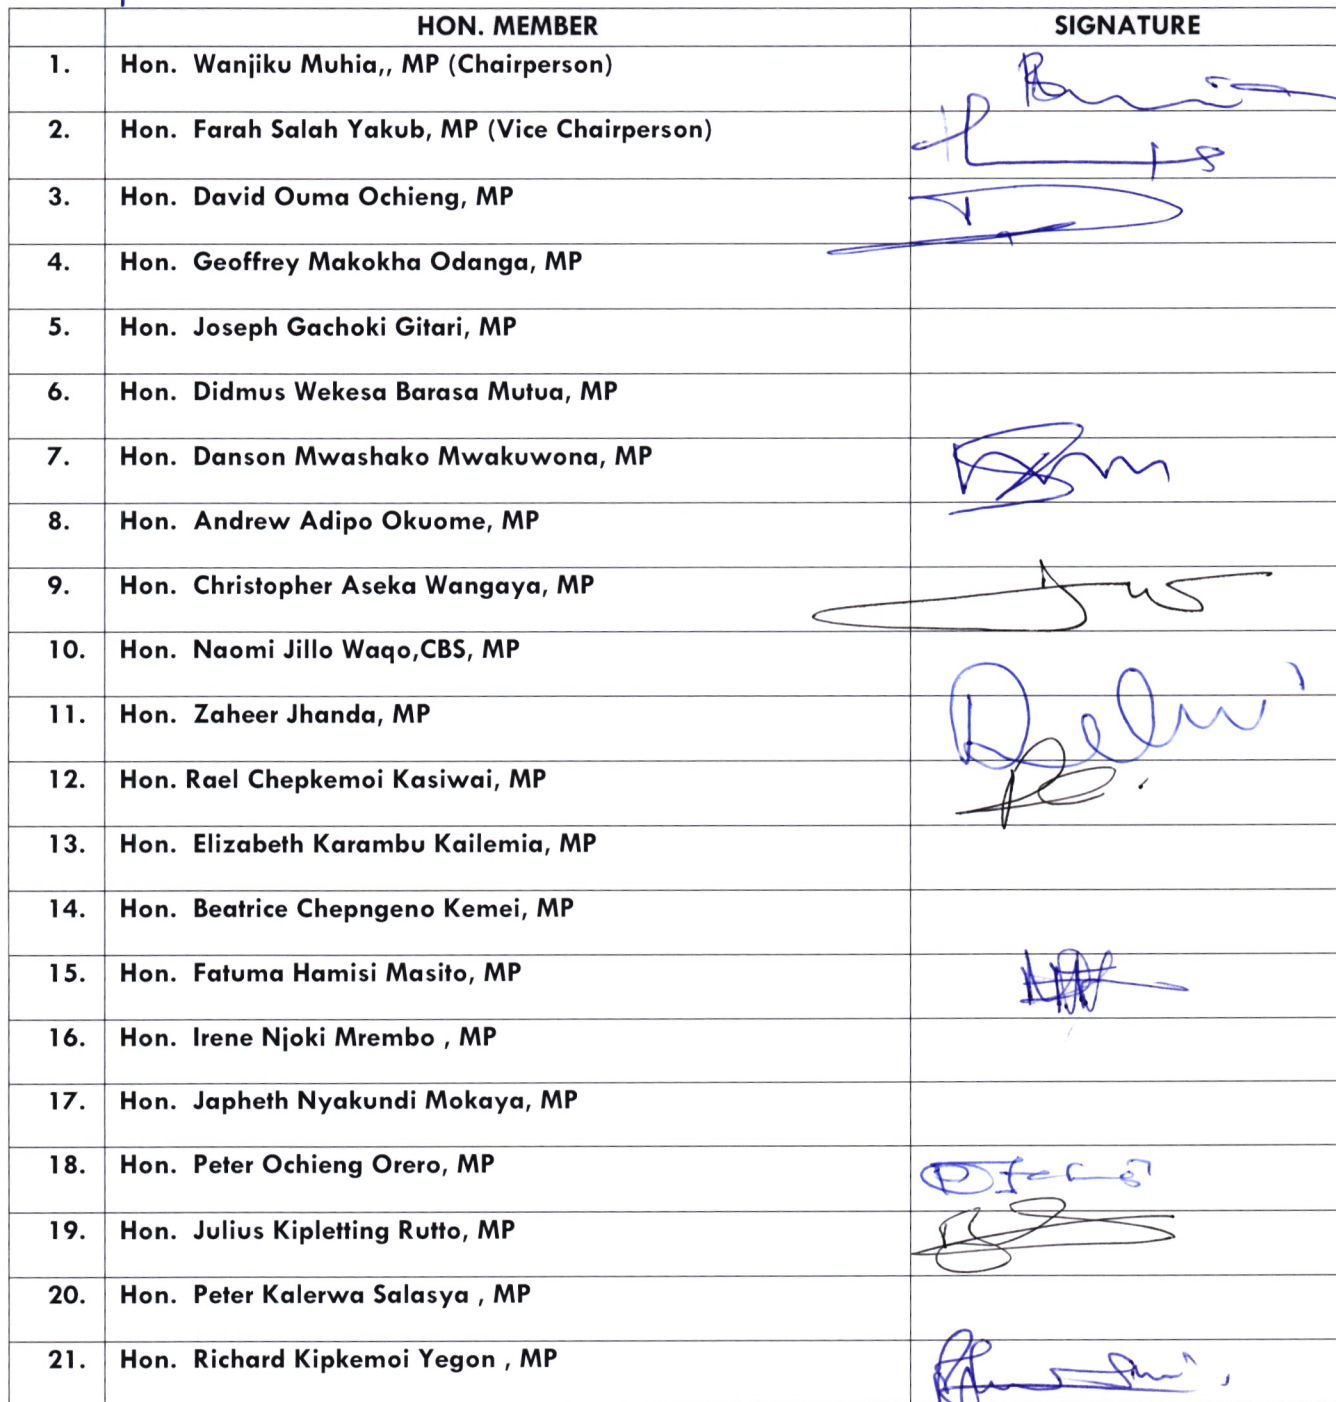 HON. MEMBER SIGNATURE
1. Hon. Wanjiku Muhia,, MP (Chairperson)
2. Hon. Farah Salah Yakub, MP (Vice Chairperson)
3. Hon. David Ouma Ochieng, MP
4. Hon. Geoffrey Makokha Odanga, MP
5. Hon. Joseph Gachoki Gitari, MP
6. Hon. Didmus Wekesa Barasa Mutua, MP
7. Hon. Danson Mwashako Mwakuwona, MP
8. Hon. Andrew Adipo Okuome, MP
9. Hon. Christopher Aseka Wangaya, MP
10. Hon. Naomi Jillo Waqo,CBS, MP
11. Hon. Zaheer Jhanda, MP
12. Hon. Rael Chepkemoi Kasiwai, MP
13. Hon. Elizabeth Karambu Kailemia, MP
14. Hon. Beatrice Chepngeno Kemei, MP
15. Hon. Fatuma Hamisi Masito, MP
16. Hon. Irene Njoki Mrembo , MP
17. Hon. Japheth Nyakundi Mokaya, MP
18. Hon. Peter Ochieng Orero, MP
19. Hon. Julius Kipletting Rutto, MP
20. Hon. Peter Kalerwa Salasya , MP
21. Hon. Richard Kipkemoi Yegon , MP